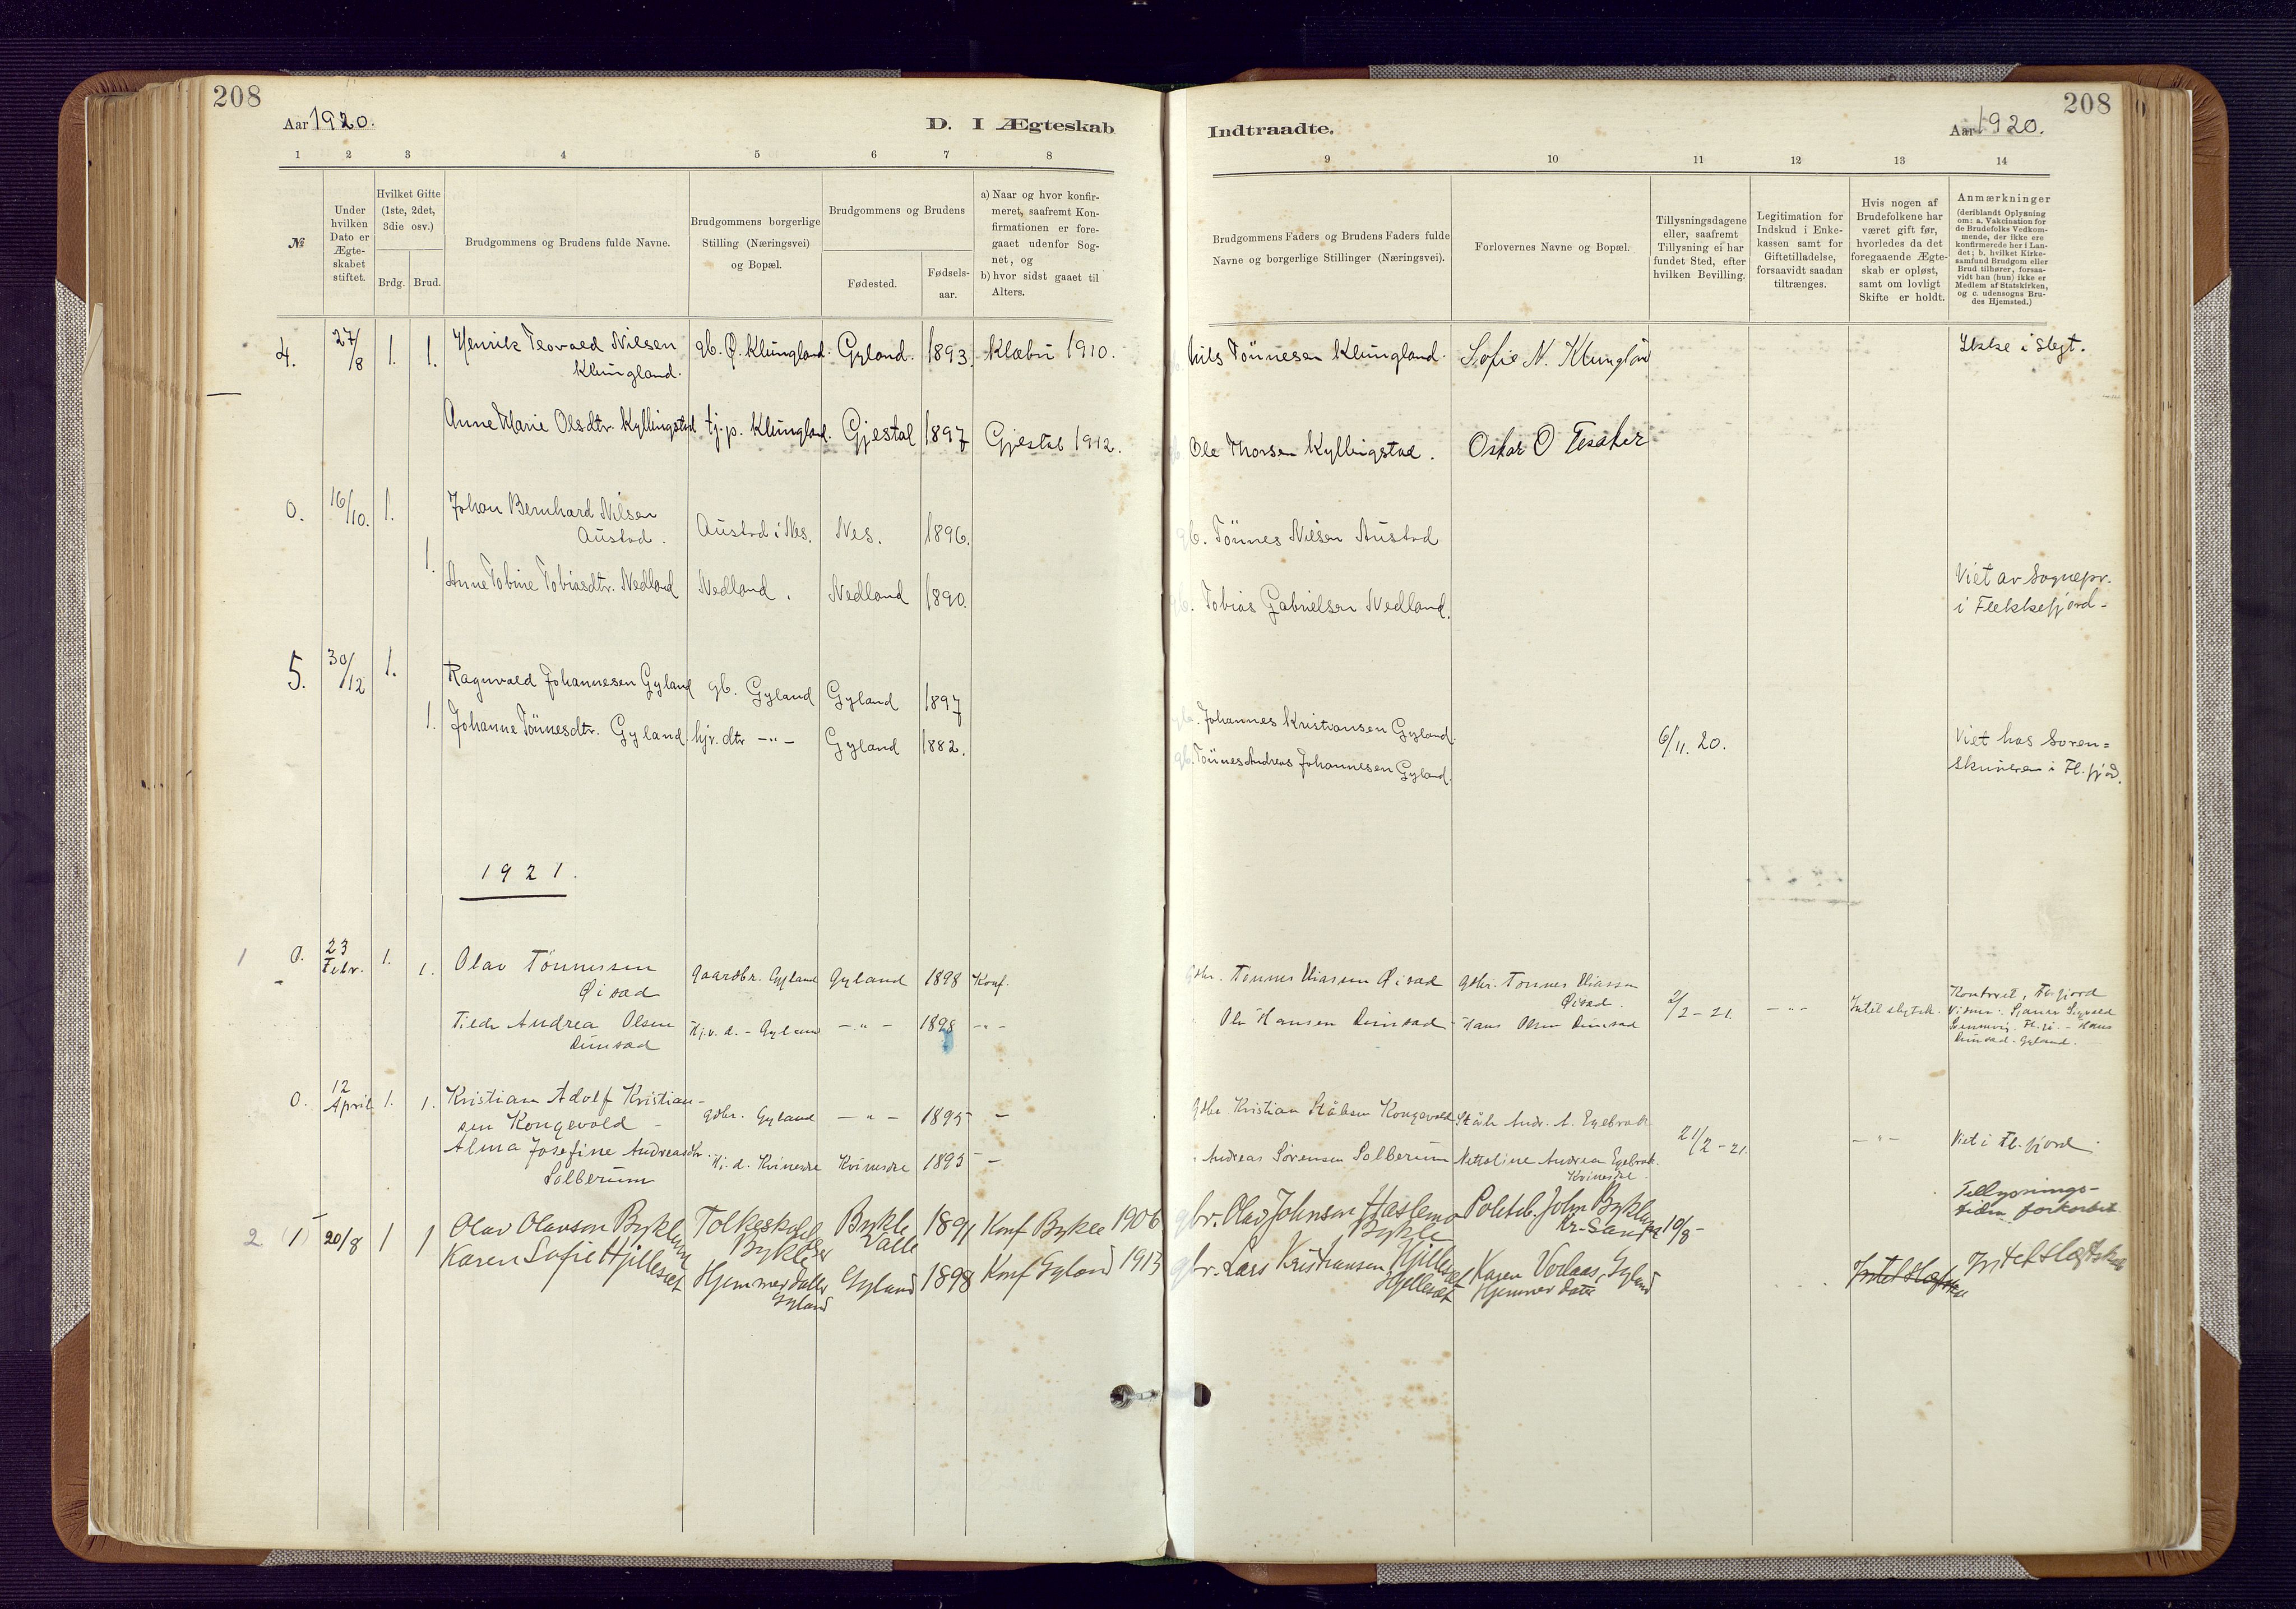 208
Aar 1920.
D. I Ægteskab
1 2 3 4 5 6 7 8
№
Under
hvilken
Dato er
Ægte-
skabet
stiftet.
Hvilket Gifte
(1ste, 2det,
3die osv.)
Brdg. Brud.
Brudgommens og Brudens fulde Navne.
Brudgommens borgerlige
Stilling (Næringsvei)
og Bopæl.
Brudgommens og Brudens
Fødested.
Fødsels-
aar.
a) Naar og hvor konfir-
meret, saafremt Kon-
firmationen er fore-
gaaet udenfor Sog-
net, og
b) hvor sidst gaaet til
Alters.
4. 27/8 1. 1. Henrik Teovald Nilsen gb. Ø. Klungland. Gyland. 1893. Klæbu 1910.
Klungland.
Anne Marie Olsdtr. Kyllingstad tj.p. Klungland. Gjestal 1897 Gjestal 1912.
0. 16/10. 1. Johan Bernhard Nilsen
Austad. Austad i Nes. Nes. 1896.
1. Anne Tobine Tobiasdtr. Nedland Nedland. Nedland 1890.
5. 30/12 1. Ragnvald Johannesen Gyland gb. Gyland Gyland 1897
1. Johanne Tönnesdtr. Gyland hjv. dtr -"- Gyland 1882.
1921.
1 0. 23 Febr. 1. 1. Olav Tönnessen gaardbr. Gyland Gyland 1898 Konf.
Øisad
Tilda Andrea Olsen Hj.v.d. - Gyland -"- 1898 -"-
Dunsad
0. 12 April 1. 1. Kristian Adolf Kristian-
sen Kongevold gdbr. Gyland -"- 1895 -
Alma Josefine Andreasdtr. Hj. d. Kvinesdal Kvinesdal 1895 -
Solberum
2 1 20/8 1 1 Olav Olavson Byklum Folkeskol Bykle Bykle Valle 1891 Konf Bykle 1906
Karen Sofie Hjillesæt Hjemmer datter Gyland Gyland 1898 Konf Gyland 1913
208
Indtraadte.
Aar 1920.
9 10 11 12 13 14
Brudgommens Faders og Brudens Faders fulde
Navne og borgerlige Stillinger (Næringsvei).
Forlovernes Navne og Bopæl.
Tillysningsdagene
eller, saafremt
Tillysning ei har
fundet Sted, efter
hvilken Bevilling.
Legitimation for
Indskud i Enke-
kassen samt for
Giftetilladelse,
forsaavidt saadan
tiltrænges.
Hvis nogen af
Brudefolkene har
været gift før,
hvorledes da det
foregaaende Ægte-
skab er opløst,
samt om lovligt
Skifte er holdt.
Anmærkninger
(deriblandt Oplysning
om: a. Vakcination for
de Brudefolke Vedkom-
mende, der ikke ere
konfirmerede her i Lan-
det; b. hvilket Kirke-
samfund Brudgom eller
Brud tilhører, forsaa-
vidt han (hun) ikke er
Medlem af Statskirken,
og c. udensogns Bru-
des Hjemsted.)
Nils Tönnesen Klungland. Sofie N. Klungland Ikke i slegt.
Ole Thorsen Kyllingstad. Oskar O Tesaker
gb. Tönnes Nilsen Austad
gb. Tobias Gabrielsen Nedland. Viet av Sognepr.
i Flekkefjord -
gb. Johannes Kristiansen Gyland.
gb. Tönnes Andreas Johannesen Gyland. 6/11. 20. Viet hos Soren=
skriveren i Fl.fjord.
Gdbr. Tönnes Eliassen Øisad gdbr. Tönnes Eliassen
Øisad.
Ole Hansen Dunsad Hans Olsen Dunsad 2/2-21. -"- Intet slegtsk. Kontrret, Fl.fjord
Hans
Dunsad - Gyland.
gdbr. Kristian Ståhsen Kongevold Ståle Andr. A. Egebrok
21/2-21. -"- Viet i Fl.fjord.
Andreas Sörensen Solberum Nettoline Andrea Egebrok.
Kvinesdal
gbr. Olav Johnson Haslemo Bykle Politib. John Byklum Kr. Sand 10/8- Tillysnings-
tiden forkortet
gbr. Lars Kristiansen Hjillesæt Hjillesæt Karen Vodaas, Gyland Hjemmer datter Intet slægtska Intet slægtskab